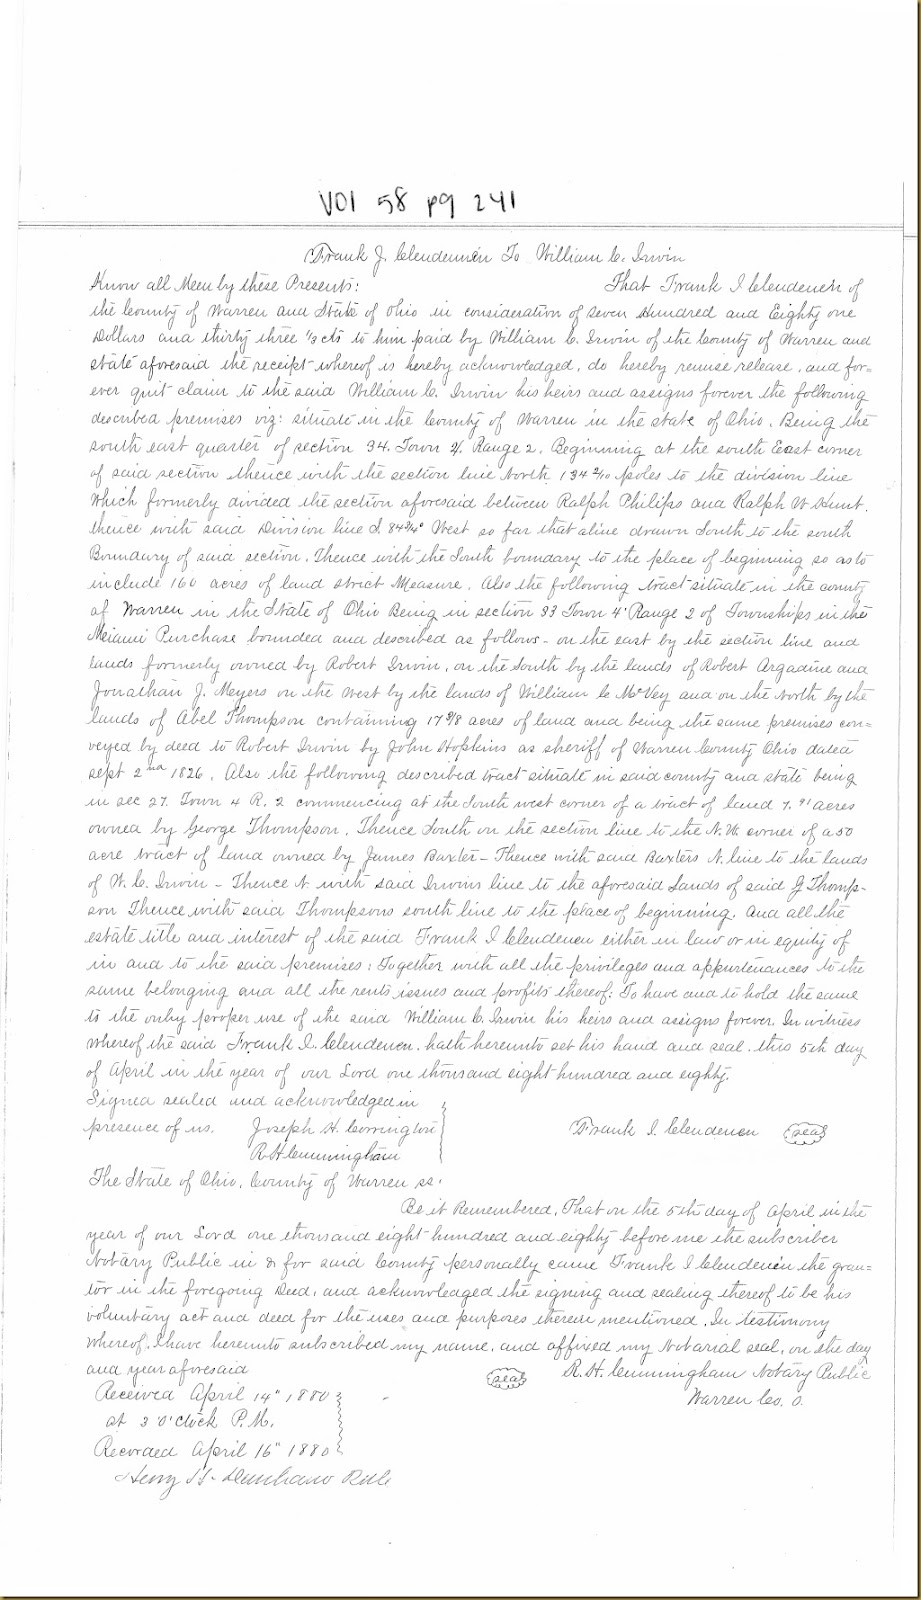 Vol 58 pg 241
Frank J. Clendenen To William C. Irwin
Know all Men by these Presents: That Frank I Clendenen of
the County of Warren and State of Ohio in consideration of Seven Hundred and Eighty one
Dollars and thirty three 1/3 cts to him paid by William C. Irwin of the County of Warren and
state aforesaid the receipt whereof is hereby acknowledged, do hereby remise release, and for=
ever quit claim to the said William C. Irwin his heirs and assigns forever the following
described premises viz: situate in the County of Warren in the state of Ohio. Being the
south east quarter of section 34. Town 4. Range 2. Beginning at the south East corner
of said section thence with the section line North 134 2/10 poles to the division line
Which formerly divided the section aforesaid between Ralph Philips and Ralph W Hunt.
thence with said Division line S. 84 3/4° West so far that a line drawn South to the south
Boundary of said section. Thence with the South boundary to the place of beginning so as to
include 160 acres of land strict Measure. Also the following tract situate in the county
of Warren in the State of Ohio Being in section 33 Town 4 Range 2 of Townships in the
Meiami Purchase bounded and described as follows - on the east by the section line and
lands formerly owned by Robert Irwin, on the South by the lands of Robert Argadine and
Jonathan J. Meyers on the West by the lands of William C McVey and on the North by the
lands of Abel Thompson containing 17 acres of land and being the same premises con=
veyed by deed to Robert Irwin by John Hopkins as sheriff of Warren County Ohio dated
sept 2nd 1826. Also the following described tract situate in said county and state being
in sec 27. Town 4 R. 2 commencing at the South west corner of a tract of land 7.91 acres
owned by George Thompson. Thence South on the section line to the N.W. corner of a 50
acre tract of land owned by James Baxter - Thence with said Baxters N. line to the lands
of W. C. Irwin - Thence N. with said Irwins line to the aforesaid Lands of said G Thomp-
son Thence with said Thompsons south line to the place of beginning. And all the
estate title and interest of the said Frank I Clendenen either in law or in equity of
in and to the said premises: Together with all the privileges and appurtenances to the
same belonging and all the rents issues and profits thereof: To have and to hold the same
to the only proper use of the said William C. Irwin his heirs and assigns forever. In witness
Whereof the said Frank I. Clendenen. hath hereunto set his hand and seal. this 5th day
of April in the year of our Lord one thousand eight hundred and eighty.
Signed sealed and acknowledged in
presence of us. Joseph H. Corrington Frank I. Clendenen seal
R. H Cunningham
The State of Ohio, County of Warren ss.
Be it Remembered, That on the 5th day of April in the
year of our Lord one thousand eight hundred and eighty before me the subscriber
Notary Public in & for said County personally came Frank I Clendenen the gran=
tor in the foregoing Deed, and acknowledged the signing and sealing thereof to be his
voluntary act and deed for the uses and purposes therein mentioned. In testimony
whereof, I have hereunto subscribed my name, and affixed my Notarial seal, on the day
and year aforesaid seal R. H. Cunningham Notary Public
Warren Co. O.
Received April 14" 1880
at 3 O'clock P.M.
Recorded April 16" 1880